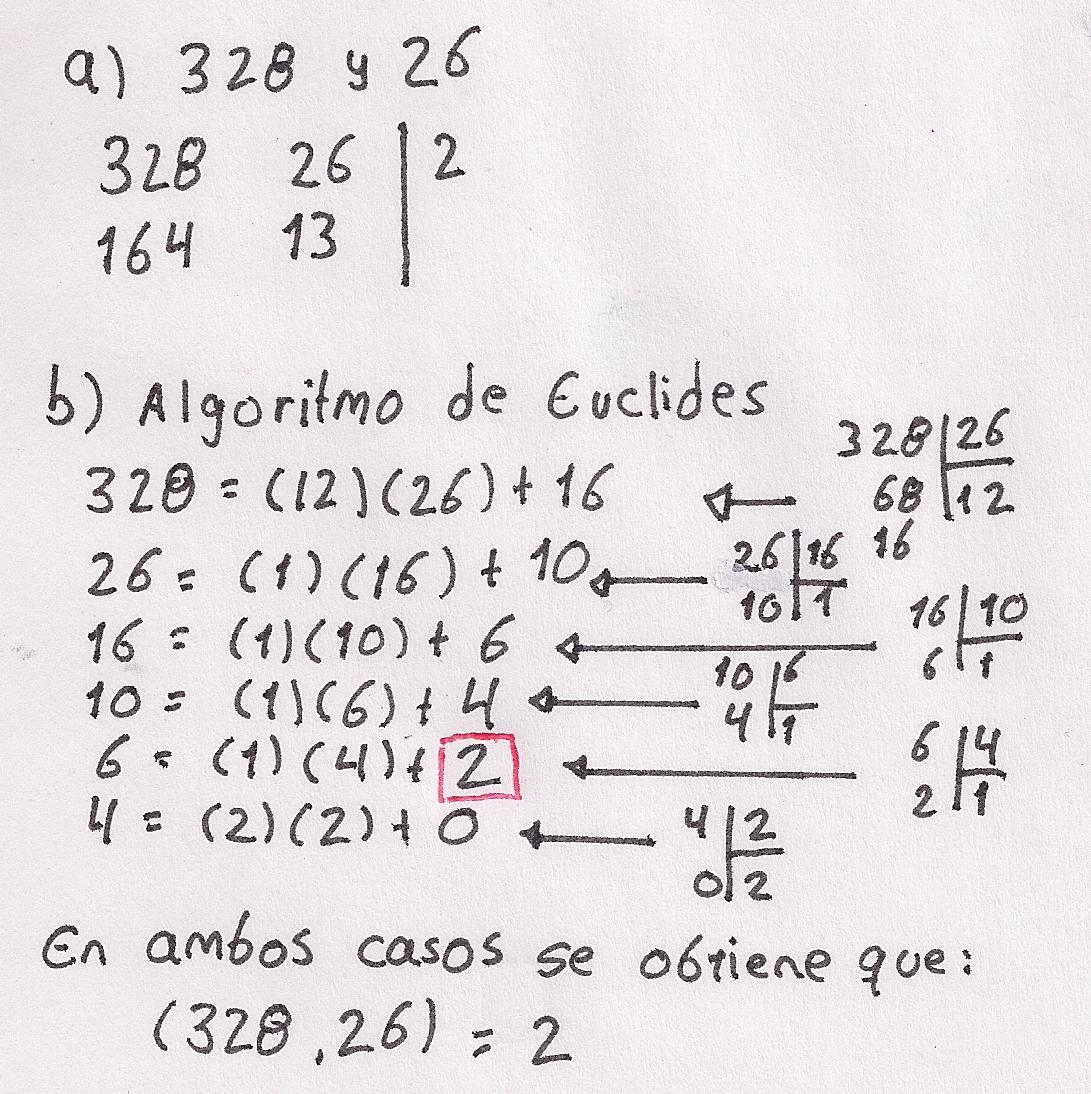 a) 328 y 26
328 26 | 2
164 13
b) Algoritmo de Euclides
328 = (12)(26) + 16
328 | 26
68 | 12
16
26 = (1)(16) + 10
26 | 16
10 | 1
16 = (1)(10) + 6
16 | 10
6 | 1
10 = (1)(6) + 4
10 | 6
4 | 1
6 = (1)(4) + 2
6 | 4
2 | 1
4 = (2)(2) + 0
4 | 2
0 | 2
En ambos casos se obtiene que:
(328, 26) = 2